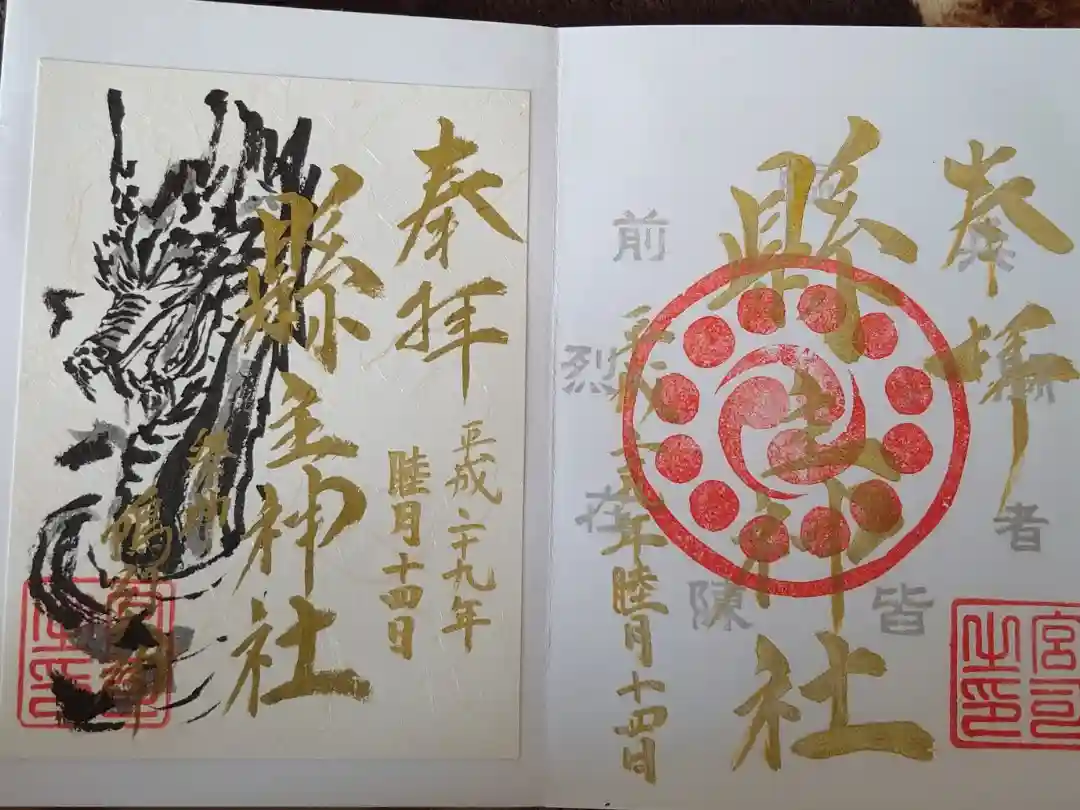 奉拝
縣主神社
平成二十九年睦月十四日
臨
兵
闘
者
皆
陳
烈
在
前
宮司之印
奉拝
平成二十九年
睦月十四日
縣主神社
祭神
宮司之印